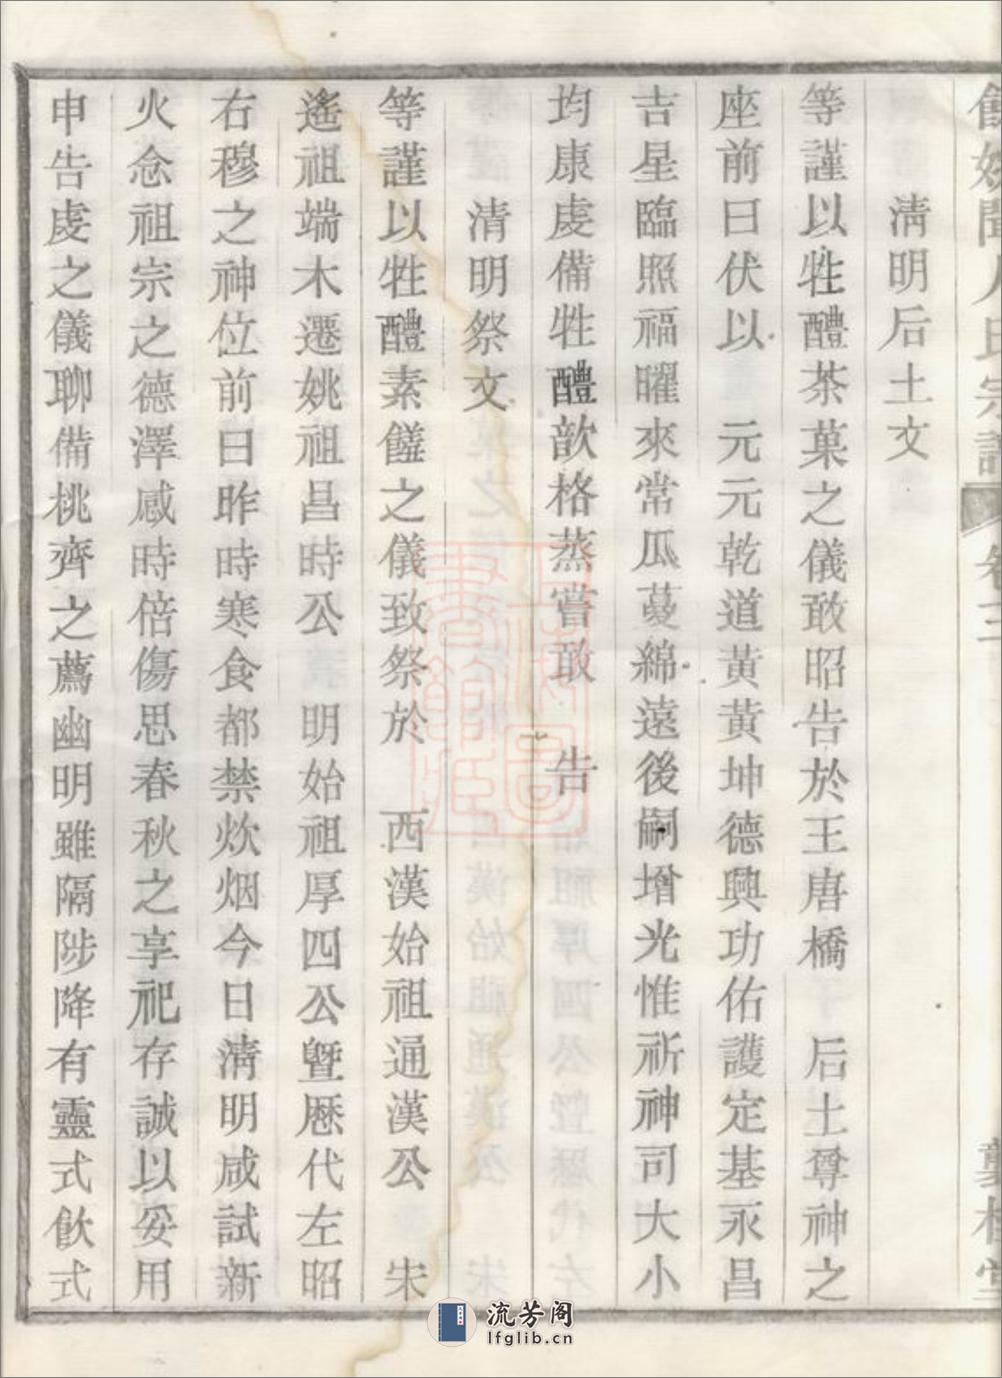 餘姚聞人氏宗譜 卷三
清明后土文
等謹以牲醴茶菓之儀敢昭告於王唐橋 后土尊神之
座前曰伏以 元元乾道黃黃坤德興功佑護定基永昌
吉星臨照福曜來常瓜蔓綿遠後嗣增光惟祈神司大小
均康虔備牲醴歆格蒸嘗敢 告
清明祭文
等謹以牲醴素饈之儀致祭於 西漢始祖通漢公 宋
遙祖端木遷姚祖昌時公 明始祖厚四公暨厯代左昭
右穆之神位前曰昨時寒食都禁炊烟今日清明咸試新
火念祖宗之德澤感時倍傷思春秋之享祀存誠以妥用
申告虔之儀聊備桃齊之薦幽明雖隔陟降有靈式飲式
上海圖書館藏
流芳阁
lfglib.cn